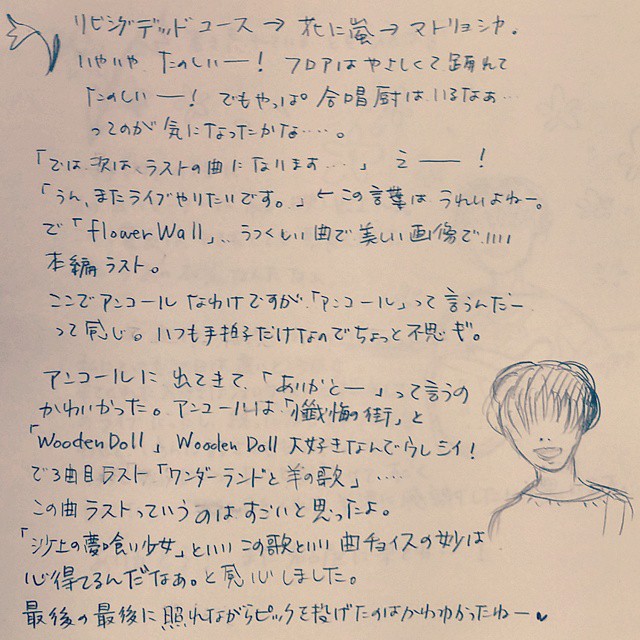 リビングデッドユース→花に嵐→マトリョシカ。
いやいや たのしいー! フロアはやさしくて踊れて
たのしいー! でもやっぱ。合唱厨はいるなぁ…
ってのが気になったかな……。
「では、次は、ラストの曲になります…」 えー!
「うん、またライブやりたいです。」←この言葉はうれしいよねー。
で「flowerWall」… うつくしい曲で美しい画像で!!!!
本編ラスト。
ここでアンコールなわけですが、「アンコール」って言うんだー
って感じ。いつも手拍子だけなのでちょっと不思ギ。
アンコールに出てきて、「ありがとー」って言うの
かわいかった。アンコールは「懺悔の街」と
「WoodenDoll」Wooden Doll大好きなんでウレシイ!
で3曲目ラスト「ワンダーランドと羊の歌」……
この曲ラストっていうのはすごいと思ったよ。
「沙上の夢喰い少女」といいこの歌といい曲チョイスの妙は
心得てるんだなぁ。と感心しました。
最後の最後に照れながらピックを投げたのはかわゆかったねー♥